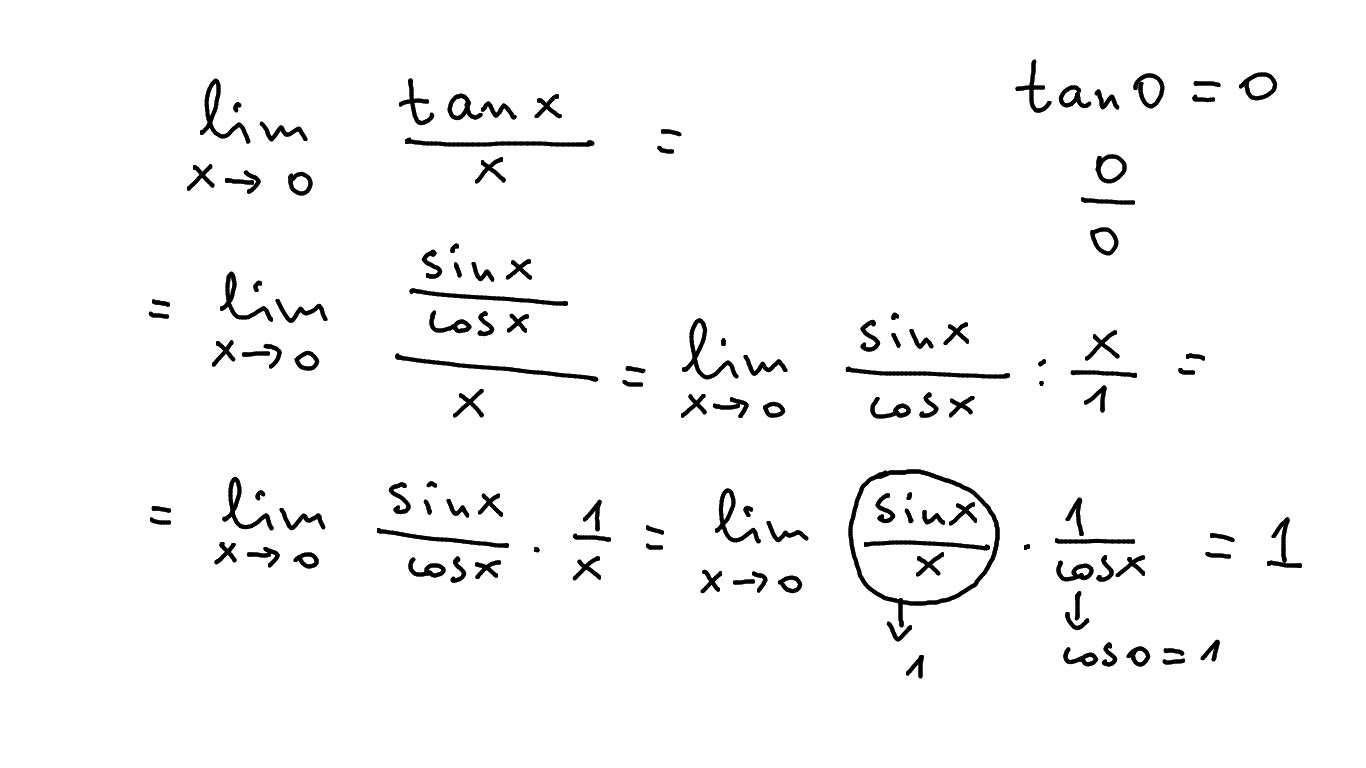 lim x→0 tan x / x =
tan 0 = 0
0/0
= lim x→0 (sin x / cos x) / x = lim x→0 sin x / cos x : x/1 =
= lim x→0 sin x / cos x · 1/x = lim x→0 sin x / x · 1 / cos x = 1
↓ 1
↓ cos 0 = 1